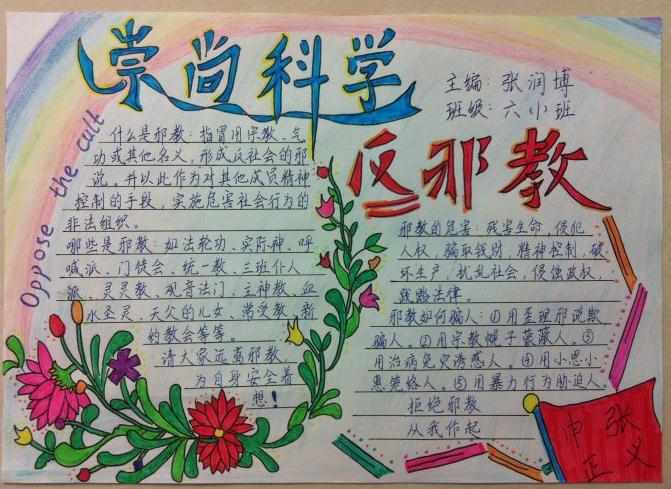 崇尚科学
主编：张润博
班级：六小班
反邪教
Oppose the cult
什么是邪教：指冒用宗教、气
功或其他名义，形成反社会的邪
说，并以此作为对其他成员精神
控制的手段，实施危害社会行为的
非法组织。
哪些是邪教：如法轮功、实际神、呼
喊派、门徒会、统一教、三班仆人
派、灵灵教、观音法门、主神教、血
水圣灵、天父的儿女、
的教会等等。
请大家远离邪教
为自身安全着
想！
邪教的危害：残害生命，侵犯
人权，骗取钱财，精神控制，破
坏生产，扰乱社会，侵蚀政权，
法律。
邪教如何骗人：①用歪理邪说欺
骗人。②用宗教幌子蒙蔽人。③
用治病免灾诱惑人。④用小恩小
惠笼络人。⑤用暴力行为胁迫人。
拒绝邪教
从我作起
张
正义